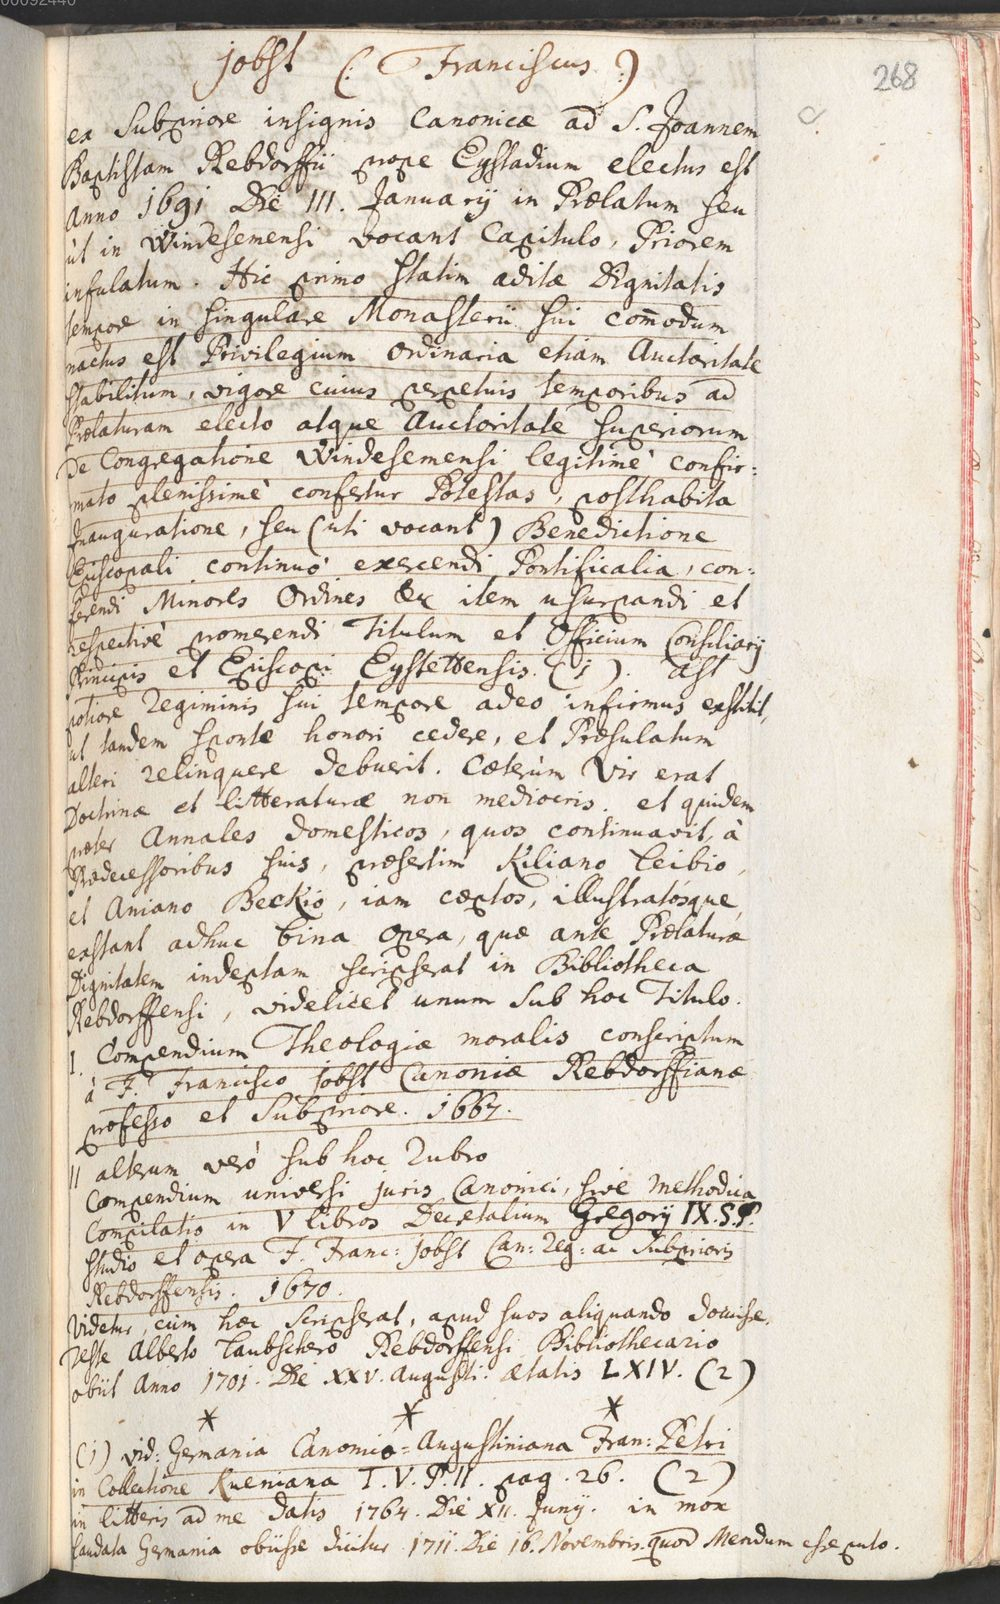 00092440
268
Jobst (: Franciscus :)
ex Subpriore insignis Canonicæ ad S. Joannem
Baptistam Rebdorffii prope Eystadium electus est
Anno 1691 Die III. Januarij in Prælatum seu
ùt in Windesemensi vocant Capitulo, Priorem
infulatum. Hic primo statim aditæ Dignitatis
tempore in singulare Monasterii sui com̄odum
nactus est Privilegium ordinaria etiam Auctoritate
stabilitum, vigore cuius perpetuis temporibus ad
Prælaturam electo atque Auctoritate superiorum
De Congregatione Windesemensi legitimè confir:
mato plenissimè confertur Potestas, posthabita
Inauguratione, seu (uti vocant) Benedictione
Episcopali continuò exercendi Pontificalia, con:
ferendi Minores Ordines &c item usurpandi et
respectivè promerendi Titulum et Officium Consiliarij
Principis et Episcopi Eystettensis. (1). Ast
potiore regiminis sui tempore adeo infirmus exstitit,
ut tandem sponte honori cedere, et Præsulatum
alteri relinquere debuerit. Cæterùm Vir erat
Doctrinæ et litteraturæ non mediocris. et quidem
præter Annales domesticos, quos continuavit, à
Prædecessoribus suis, præsertim Kiliano Leibio,
et Aniano Beckio, iam cæptos, illustratosque,
exstant adhuc bina opera, quæ ante Prælaturæ
Dignitatem indeptam scripserat in Bibliotheca
Rebdorffensi, videlicet unum sub hoc Titulo.
I. Compendium Theologiæ moralis conscriptum
à F. Francisco Jobst Canoniæ Rebdorffianæ
professo et Subpriore. 1667.
II alterum verò sub hoc Rubro
Compendium universi juris Canonici, sive methodica
Compilatio in V libros Decretalium Gregorij IX. S. P.
studio et opera F. Franc: Jobst Can: reg: ac Subprioris
Rebdorffensis. 1670.
Videtur, cùm hæc scripserat, apud suos aliquando docuisse,
Teste Alberto Taubschero Rebdorffensi Bibliothecario
obiit Anno 1701. Die XXV. Augusti: ætatis LXIV. (2)
* * *
(1) vid: Germania Canonico=Augustiniana Fran: Petri
in Collectione Kueniana T. V. P. II. pag. 26. (2)
in litteris ad me datis 1764. Die XII. Junij. in mox
laudata Germania obiisse dicitur 1711. Die 16. Novembris. quod Mendum esse puto.